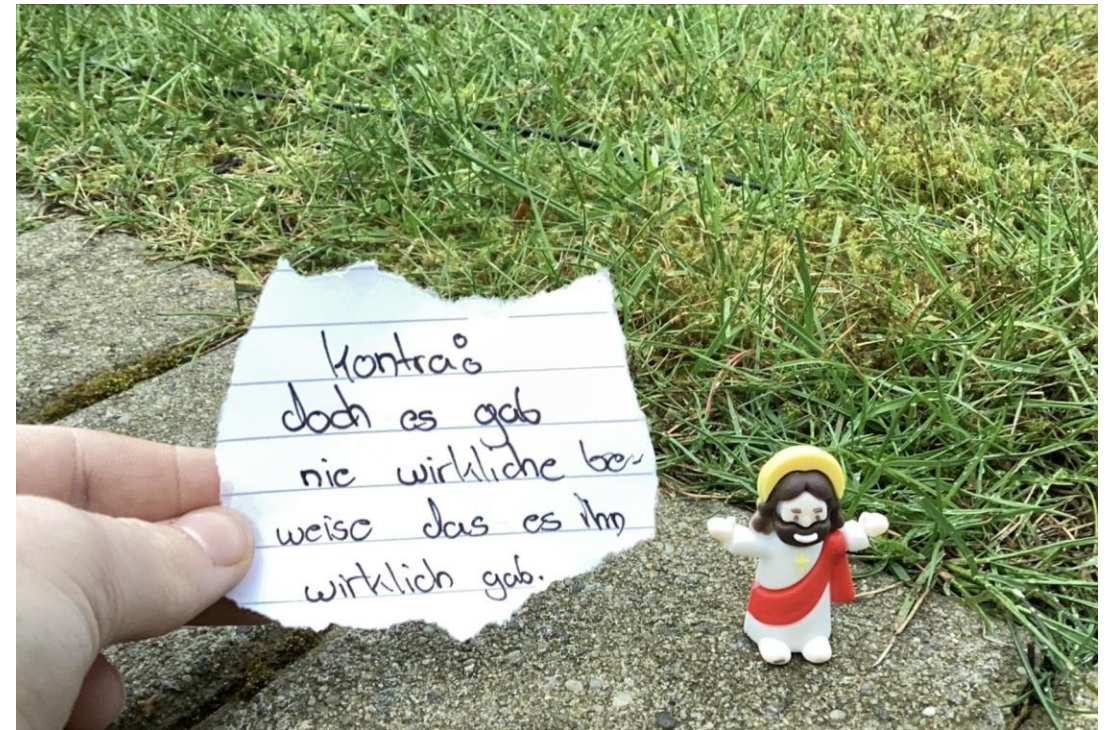 Kontra:
doch es gab
nie wirkliche be-
weise das es ihn
wirklich gab.